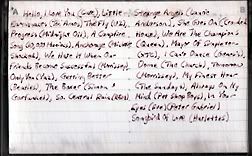 A Hello, I Love You (Cure), Little
Earthquakes (T. Amos), The Fly (U2),
Progress (Midnight Oil), A Campfire
Song (10,000 Maniacs), Anchorage (Michelle
Shocked), We Hate It When Our
Friends Become Successful (Morrissey)
Only You (Yaz), Getting Better
(Beatles), The Boxer (Simon &
Garfunkel), So. Central Rain (REM)
B
Strange Angels (Laurie
Anderson), She Goes On (Crowded
House), We Are The Champions
(Queen), Mayor Of Simpleton
(XTC), I Can't Dance (Genesis),
Dominos (The Church), Tomorrow
(Morrissey), My Finest Hour
(The Sundays), Always On My
Mind (Pet Shop Boys), In Your
Eyes (live) (Peter Gabriel)
Songbird Of Love (Marlettes)